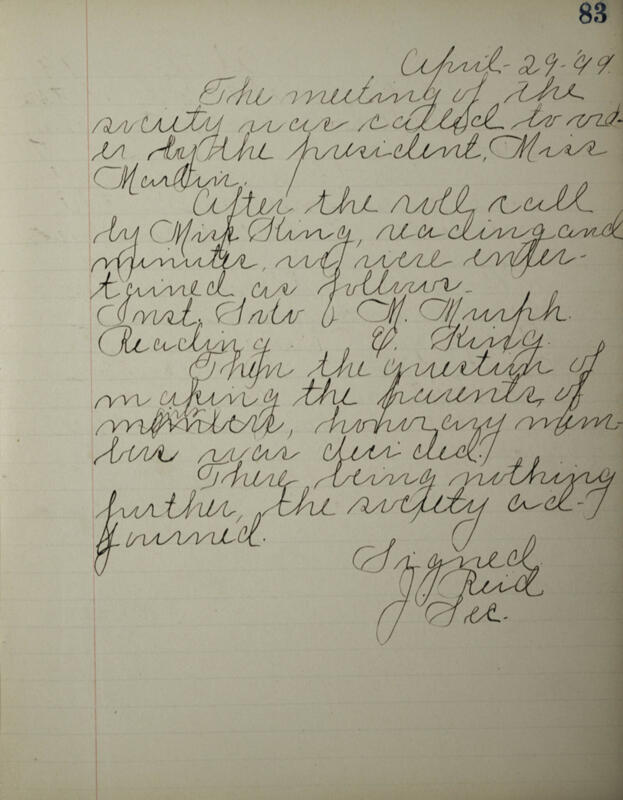 83
April-29-'99.
The meeting of the
society was called to ord-
er by the president, Miss
Martin.
After the roll call
by Miss King, reading and
minutes, we were enter-
tained as follows.
Inst. Solo M. Murph.
Reading E. King.
Then the question of
making the parents, of
members, honorary mem-
bers was decided.
There being nothing
further, the society ad-
journed.
Signed
J. Reid
Sec.